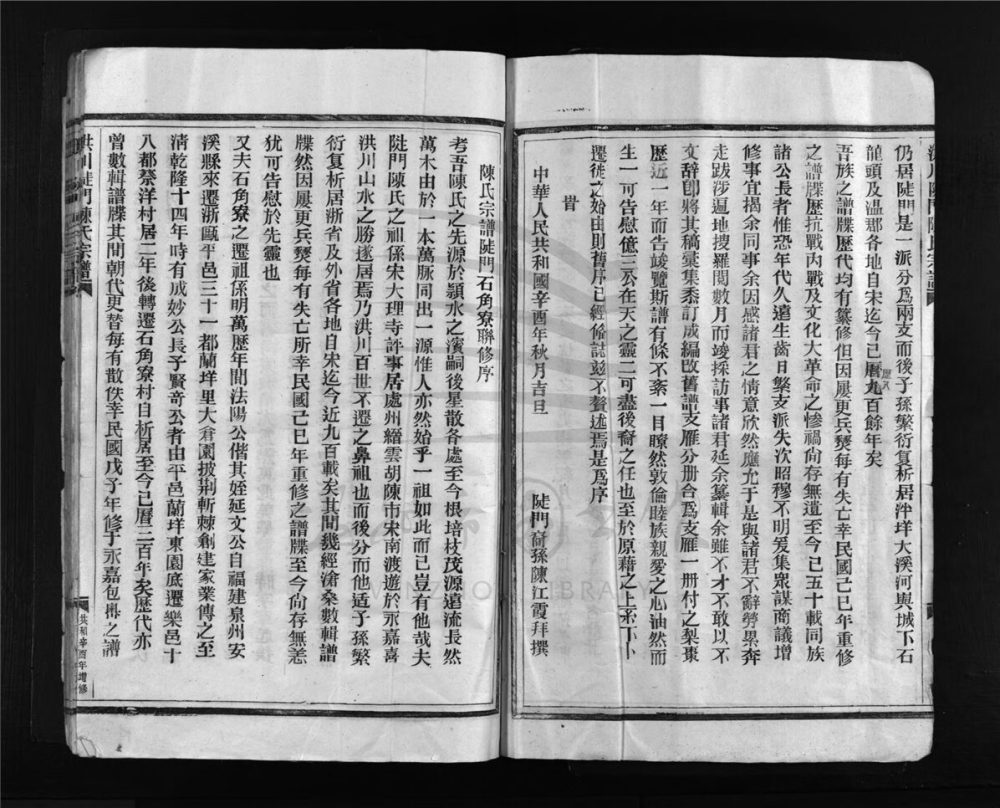 仍居陡門是一派分爲兩支而後子孫繁衍复析居泮垟大溪河與城下石
龍頭及温郡各地自宋迄今已曆九百餘年矣
吾族之譜牒歷代均有纂修但因屢更兵燹每有失亡幸民國己巳年重修
之譜牒歷抗戰內戰及文化大革命之惨禍尙存無遺至今已五十載同族
諸公長者惟恐年代久遠生齒日繁支派失次昭穆不明爰集衆謀商議增
修事宜揭余同事余因感諸君之情意欣然應允于是與諸君不辭勞累奔
走跋涉遍地搜羅閲數月而竣採訪事諸君延余纂輯余雖不才不敢以不
文辭卽將其稿彙集黍訂成編改舊譜支雁分册合爲支雁一册付之梨棗
歷近一年而告竣覽斯譜有條不紊一目瞭然敦倫睦族親愛之心油然而
生一可告慰億三公在天之靈二可盡後裔之任也至於原藉之上來下卜
遷徙之始由則舊序已經備誌兹不贅述焉是爲序
旹
中華人民共和國辛酉年秋月吉旦
陡門裔孫陳江霞拜撰
陳氏宗譜陡門石角寮聯修序
考吾陳氏之先源於頴水之濱嗣後星散各處至今根培枝茂源遠流長然
萬木由於一本萬脈同出一源惟人亦然始乎一祖如此而已豈有他哉夫
陡門陳氏之祖係宋大理寺許事居處州縉雲胡陳市宋南渡遊於永嘉喜
洪川山水之勝遂居焉乃洪川百世不遷之鼻祖也而後分而他适子孫繁
衍复析居浙省及外省各地自宋迄今近九百載矣其間幾經滄桑數輯譜
牒然因屢更兵燹每有失亡所幸民國己巳年重修之譜牒至今尙存無恙
犹可告慰於先靈也
又夫石角寮之遷祖係明萬歷年間法陽公偕其姪延文公自福建泉州安
溪縣來遷浙甌平邑三十一都蘭垟里大倉園披荆斬棘創建家業傳之至
淸乾隆十四年時有成妙公長子賢奇公者由平邑蘭垟東園底遷樂邑十
八都滎洋村居二年後轉遷石角寮村自析居至今已曆二百年矣歷代亦
曾數輯譜牒其間朝代更替每有散佚幸民國戊子年修于永嘉包嶴之譜
洪川陡門陳氏宗譜
共和辛酉年增修